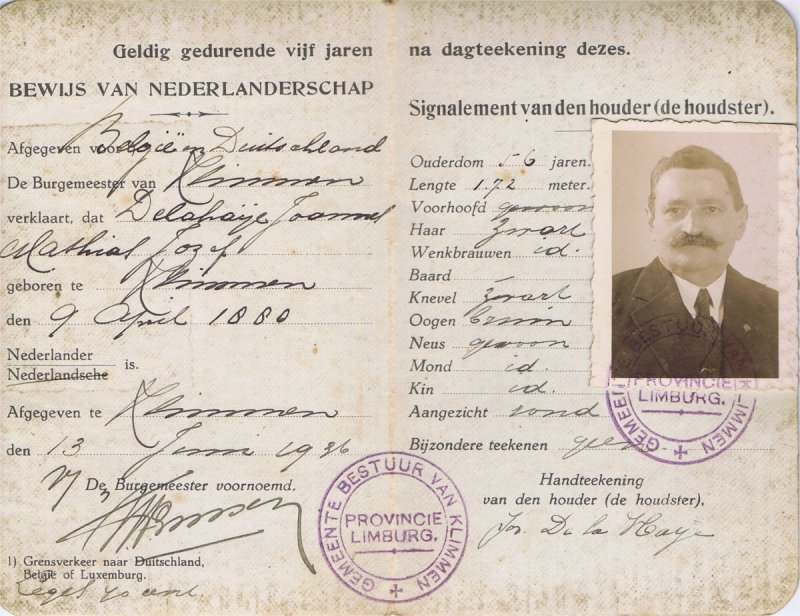 Geldig gedurende vijf jaren
BEWIJS VAN NEDERLANDERSCHAP
Afgegeven voor België en Duitschland
De Burgemeester van Klimmen
verklaart, dat Delahaije Joannes
Mathias Jozef
geboren te Klimmen
den 9 April 1880
Nederlander
Nederlandsche is.
Afgegeven te Klimmen
den 13 Juni 1936
De Burgemeester voornoemd,
1) Grensverkeer naar Duitschland,
België of Luxemburg.
na dagteekening dezes.
Signalement van den houder (de houdster).
Ouderdom 56 jaren.
Lengte 1.72 meter.
Voorhoofd gewoon
Haar zwart
Wenkbrauwen id.
Baard
Knevel zwart
Oogen bruin
Neus gewoon
Mond id.
Kin id.
Aangezicht rond
Bijzondere teekenen geen.
Handteekening
van den houder (de houdster),
Jos. De la Haye
GEMEENTE BESTUUR VAN KLIMMEN
PROVINCIE
LIMBURG.
GEMEENTE BESTUUR VAN KLIMMEN
PROVINCIE
LIMBURG.